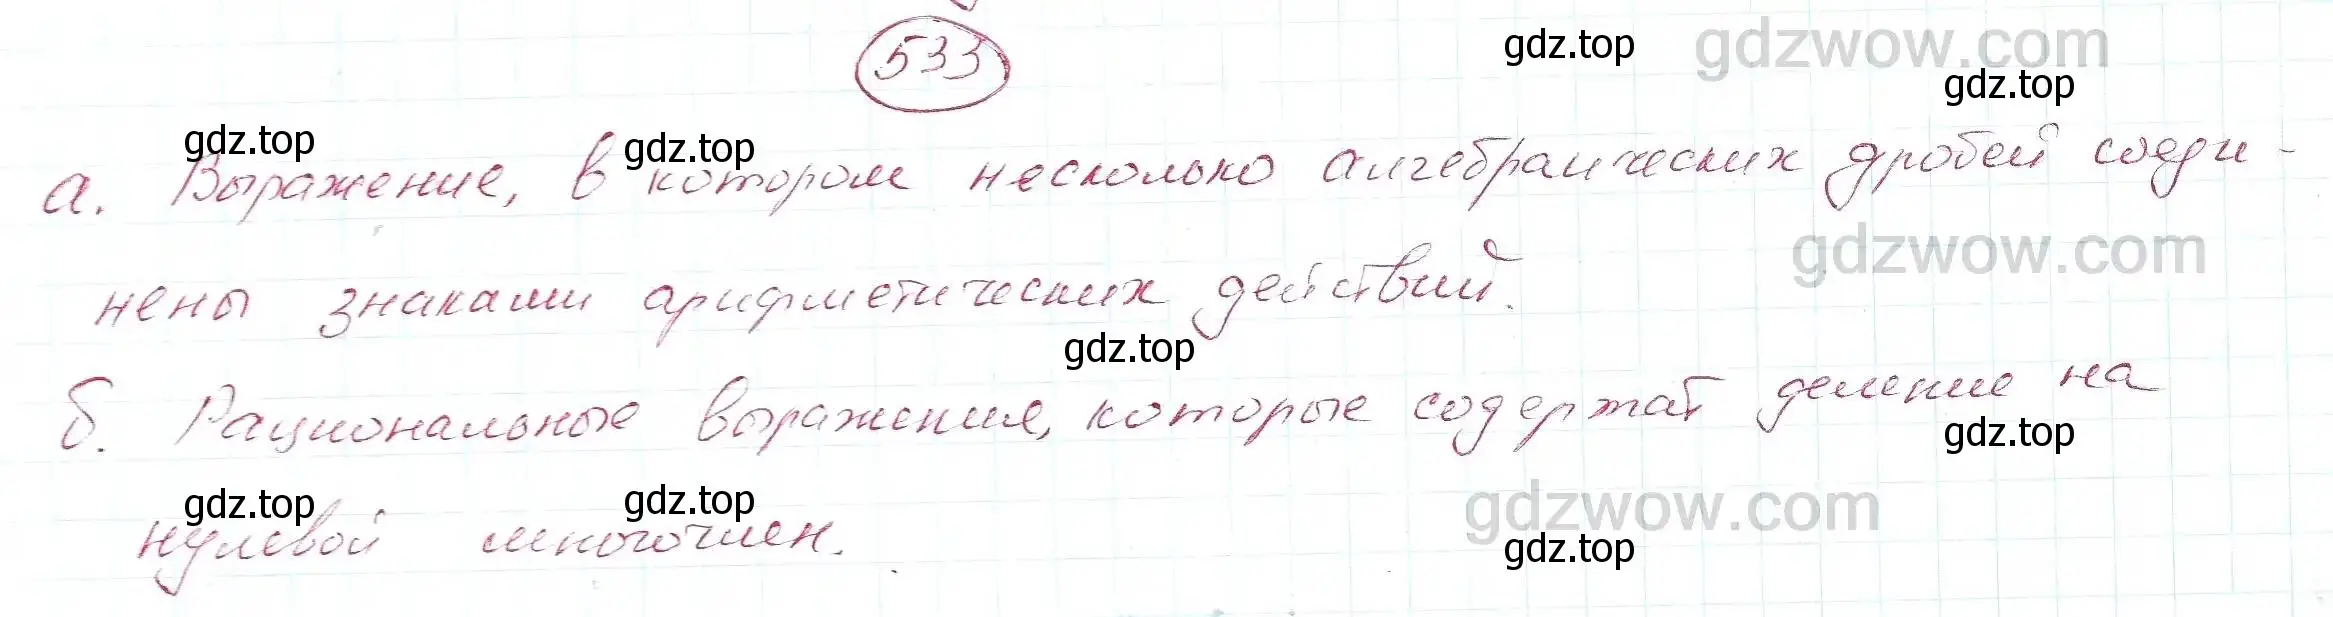 533
gdz.top
gdzwow.com
gdz.top
gdz.top
gdz.top
а. Выражение, в котором несколько алгебраических дробей соеди-
gdzwow.com
нены знаками арифметических действий.
gdz.top
б. Рациональные выражения, которые содержат деление на
gdz.top
gdz.top
gdz.top
gdzwow.com
нулевой многочлен.
gdz.top